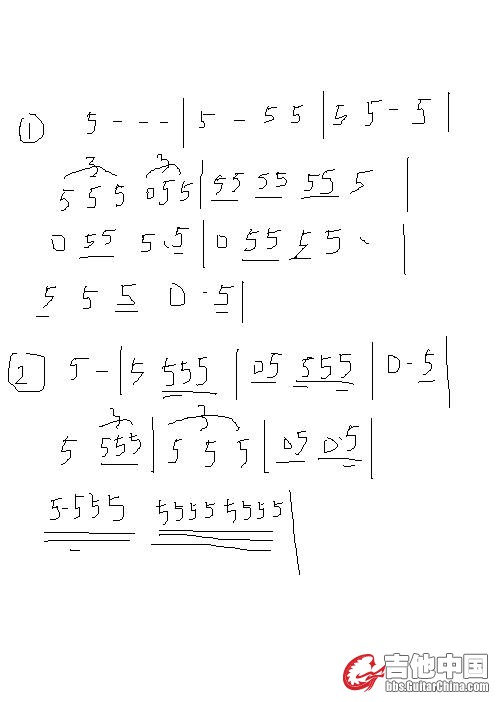 ① 5 - - - | 5 - 5 5 | 5 5 - 5 |
3 3
5 5 5 0 5 5 | 55 55 55 5 |
0 55 5 · 5 | 0 55 5 5 · |
5 5 5 0 · 5 |
2 5 - | 5 555 | 05 555 | 0 · 5 |
3 3
5 555 | 5 5 5 | 05 0·5 |
5·555 55555555 |
吉他中国
bbsGuitarChina.com